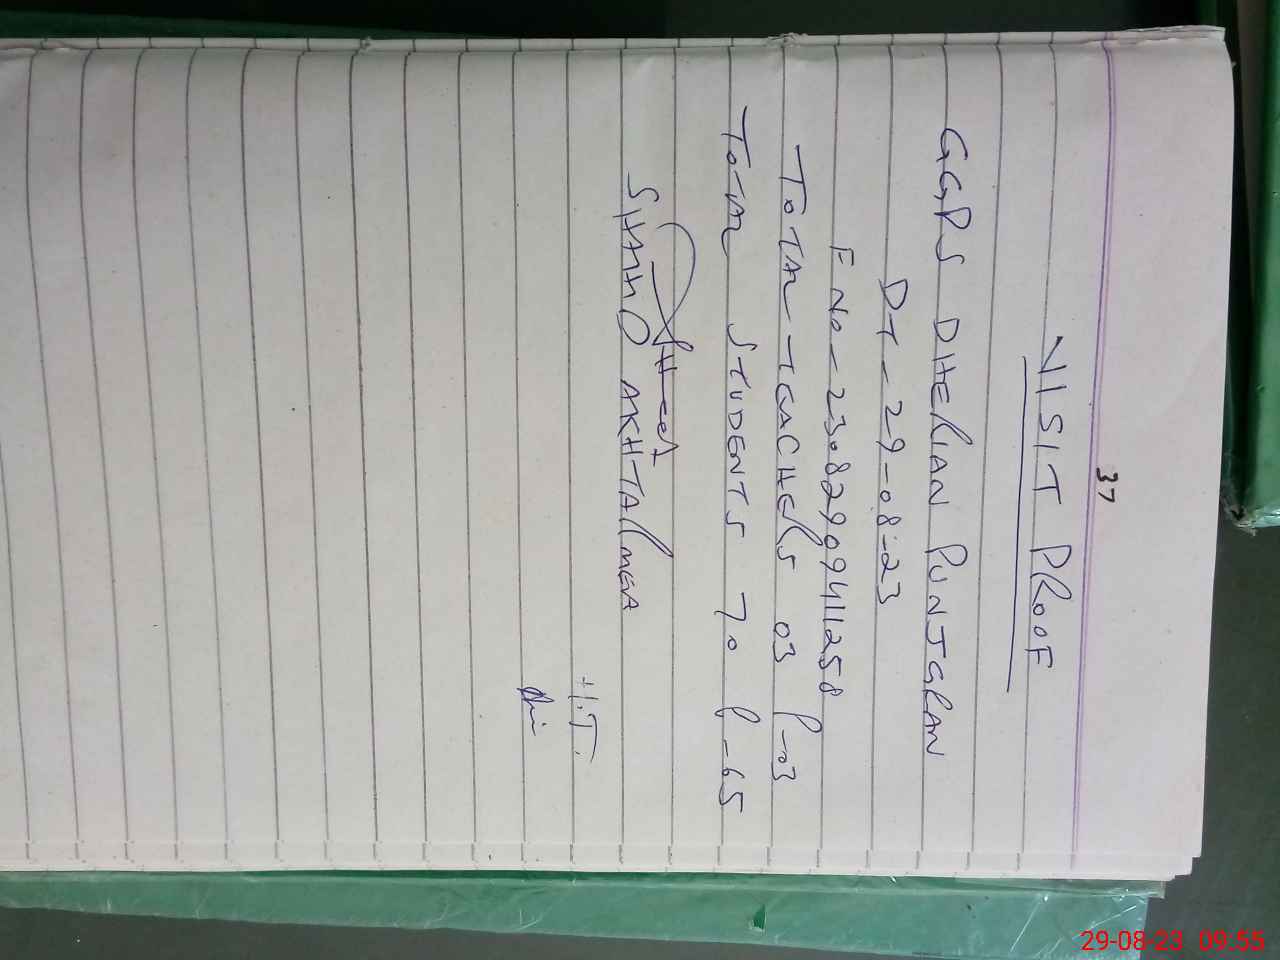 37
VISIT PROOF
GGPS DHERIAN PUNJGRAN
DT - 29-08-23
F No - 23082909411258
TOTAL TEACHERS 03 P-03
TOTAL STUDENTS 70 P-65
SHAHID AKHTAR MEA
H.T.
29-08-23 09:55